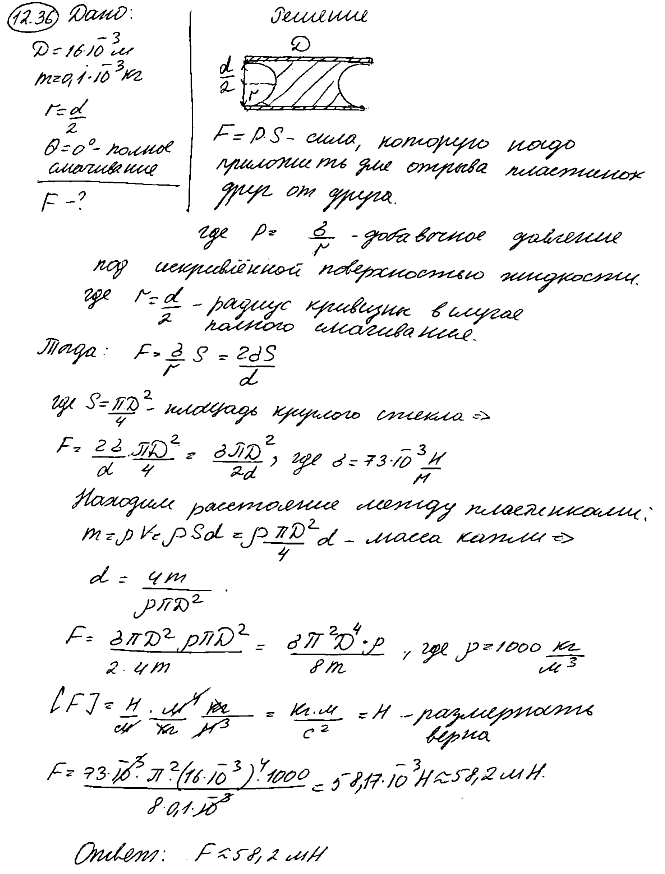 12.36 Дано:
D=16·10⁻³ м
m=0,1·10⁻³ кг
r=d/2
θ=0°- полное
смачивание
F-?
Решение
D
d/2
r
F=P·S - сила, которую надо
приложить для отрыва пластинок
друг от друга.
где P= σ/r - добавочное давление
под искривлённой поверхностью жидкости.
где r=d/2 - радиус кривизны в случае
полного смачивания.
Тогда: F=σ/r S = 2σS/d
где S=πD²/4 - площадь круглого стекла =>
F= 2σ/d · πD²/4 = σπD²/2d, где σ=73·10⁻³ Н/м
Находим расстояние между пластинками:
m=ρV=ρSd=ρ πD²/4 d - масса капли =>
d = 4m/ρπD².
F= σπD² ρπD²/2·4m = σπ²D⁴·ρ/8m, где ρ=1000 кг/м³
[F]= Н/м · м⁴/кг · кг/м³ = кг·м/с² = Н - размерность
верна
F= 73·10⁻³·π²·(16·10⁻³)⁴·1000/8·0,1·10⁻³ = 58,17·10⁻³Н≈58,2 мН.
Ответ: F≈58,2 мН